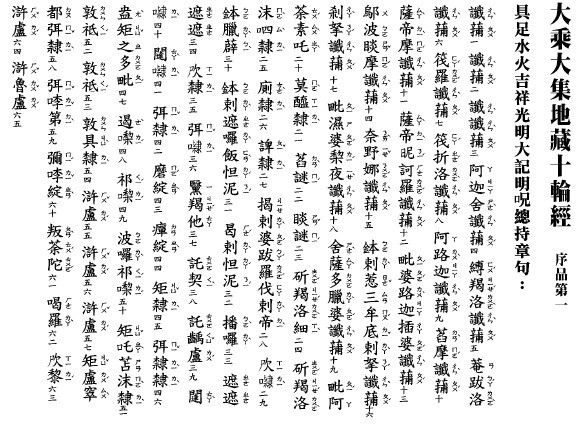 大乘大集地藏十輪經　序品第一
具足水火吉祥光明大記明呪總持章句：
讖蒱一　讖蒱二　讖讖蒱三　阿迦舍讖蒱四　縛羯洛讖蒱五　菴跋洛
讖蒱六　筏羅讖蒱七　筏折洛讖蒱八　阿路迦讖蒱九　萏摩讖蒱十
薩帝摩讖蒱十一　薩帝昵訶羅讖蒱十二　毗婆路迦插婆讖蒱十三
鄔波睒摩讖蒱十四　奈野娜讖蒱十五　鉢剌惹三牟底剌拏讖蒱十六
剎拏讖蒱十七　毗濕婆梨夜讖蒱十八　舍薩多臘婆讖蒱十九　毗阿
荼素吒二十　莫醯隸二一　萏謎二二　睒謎二三　斫羯洛細二四　斫羯洛
沬呬隸二五　廁隸二六　諀隸二七　揭剌婆跋羅伐剌帝二八　㰤㘑二九
鉢臘薜三十　鉢剌遮囉飯怛泥三一　曷剌怛泥三二　播囉三三　遮遮
遮遮三四　㰤隸三五　弭㘑三六　黳羯他三七　託契三八　託齲盧三九　闥
㘑四十　闥㘑四一　弭隸四二　磨綻四三　瘴綻四四　矩隸四五　弭隸隸四六
盎矩之多毗四七　遏犁四八　祁犁四九　波囉祁犁五十　矩吒苫沬隸五一
敦祇五二　敦祇五三　敦具隸五四　滸盧五五　滸盧五六　滸盧五七　矩盧窣
都弭隸五八　弭哩第五九　彌哩綻六十　叛荼陀六一　喝羅六二　㰤黎六三
滸盧六四　滸魯盧六五